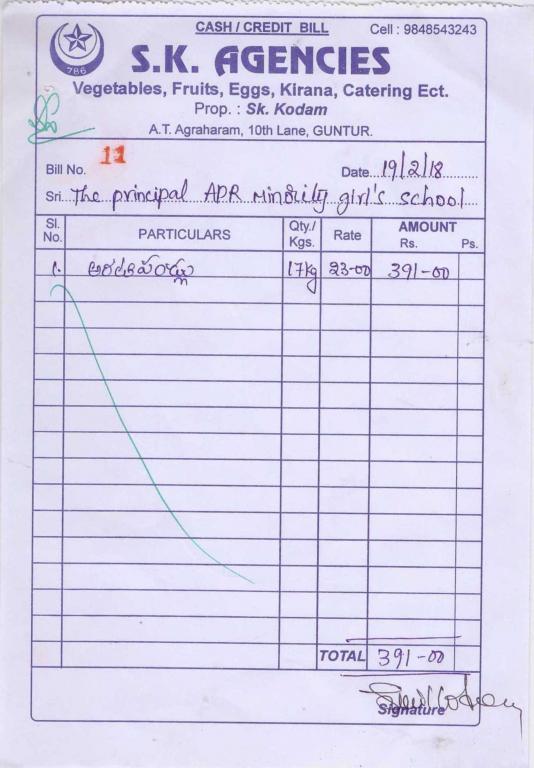 CASH / CREDIT BILL
Cell : 9848543243
786
S.K. AGENCIES
Vegetables, Fruits, Eggs, Kirana, Catering Ect.
Prop. : Sk. Kodam
A.T. Agraharam, 10th Lane, GUNTUR.
Bill No. 11
Date 19/2/18
Sri. The principal APR Minority girl's school
Sl. No. PARTICULARS Qty./ Kgs. Rate AMOUNT Rs. Ps.
1. అరటిపండ్లు 17kg 23-00 391-00
TOTAL 391-00
Signature